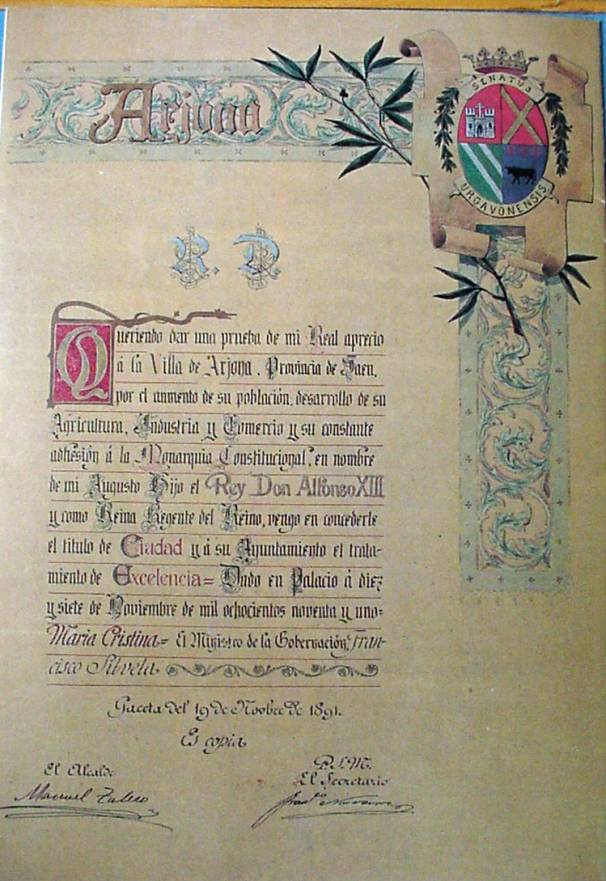 Arjona
SENATUS
URGAVONENSIS
R. D.
Queriendo dar una prueba de mi Real aprecio
á la Villa de Arjona, Provincia de Jaen,
por el aumento de su población, desarrollo de su
Agricultura, Industria y Comercio y su constante
adhesión á la Monarquia Constitucional, en nombre
de mi Augusto Hijo el Rey Don Alfonso XIII
y como Reina Regente del Reino, vengo en concederle
el titulo de Ciudad y á su Ayuntamiento el trata-
miento de Excelencia= Dado en Palacio á diez
y siete de Noviembre de mil ochocientos noventa y uno=
Maria Cristina= El Ministro de la Gobernación, Fran-
cisco Silvela
Gaceta del 19 de Novbre de 1891.
Es copia
El Alcalde
P.S.M.
El Secretario
Manuel